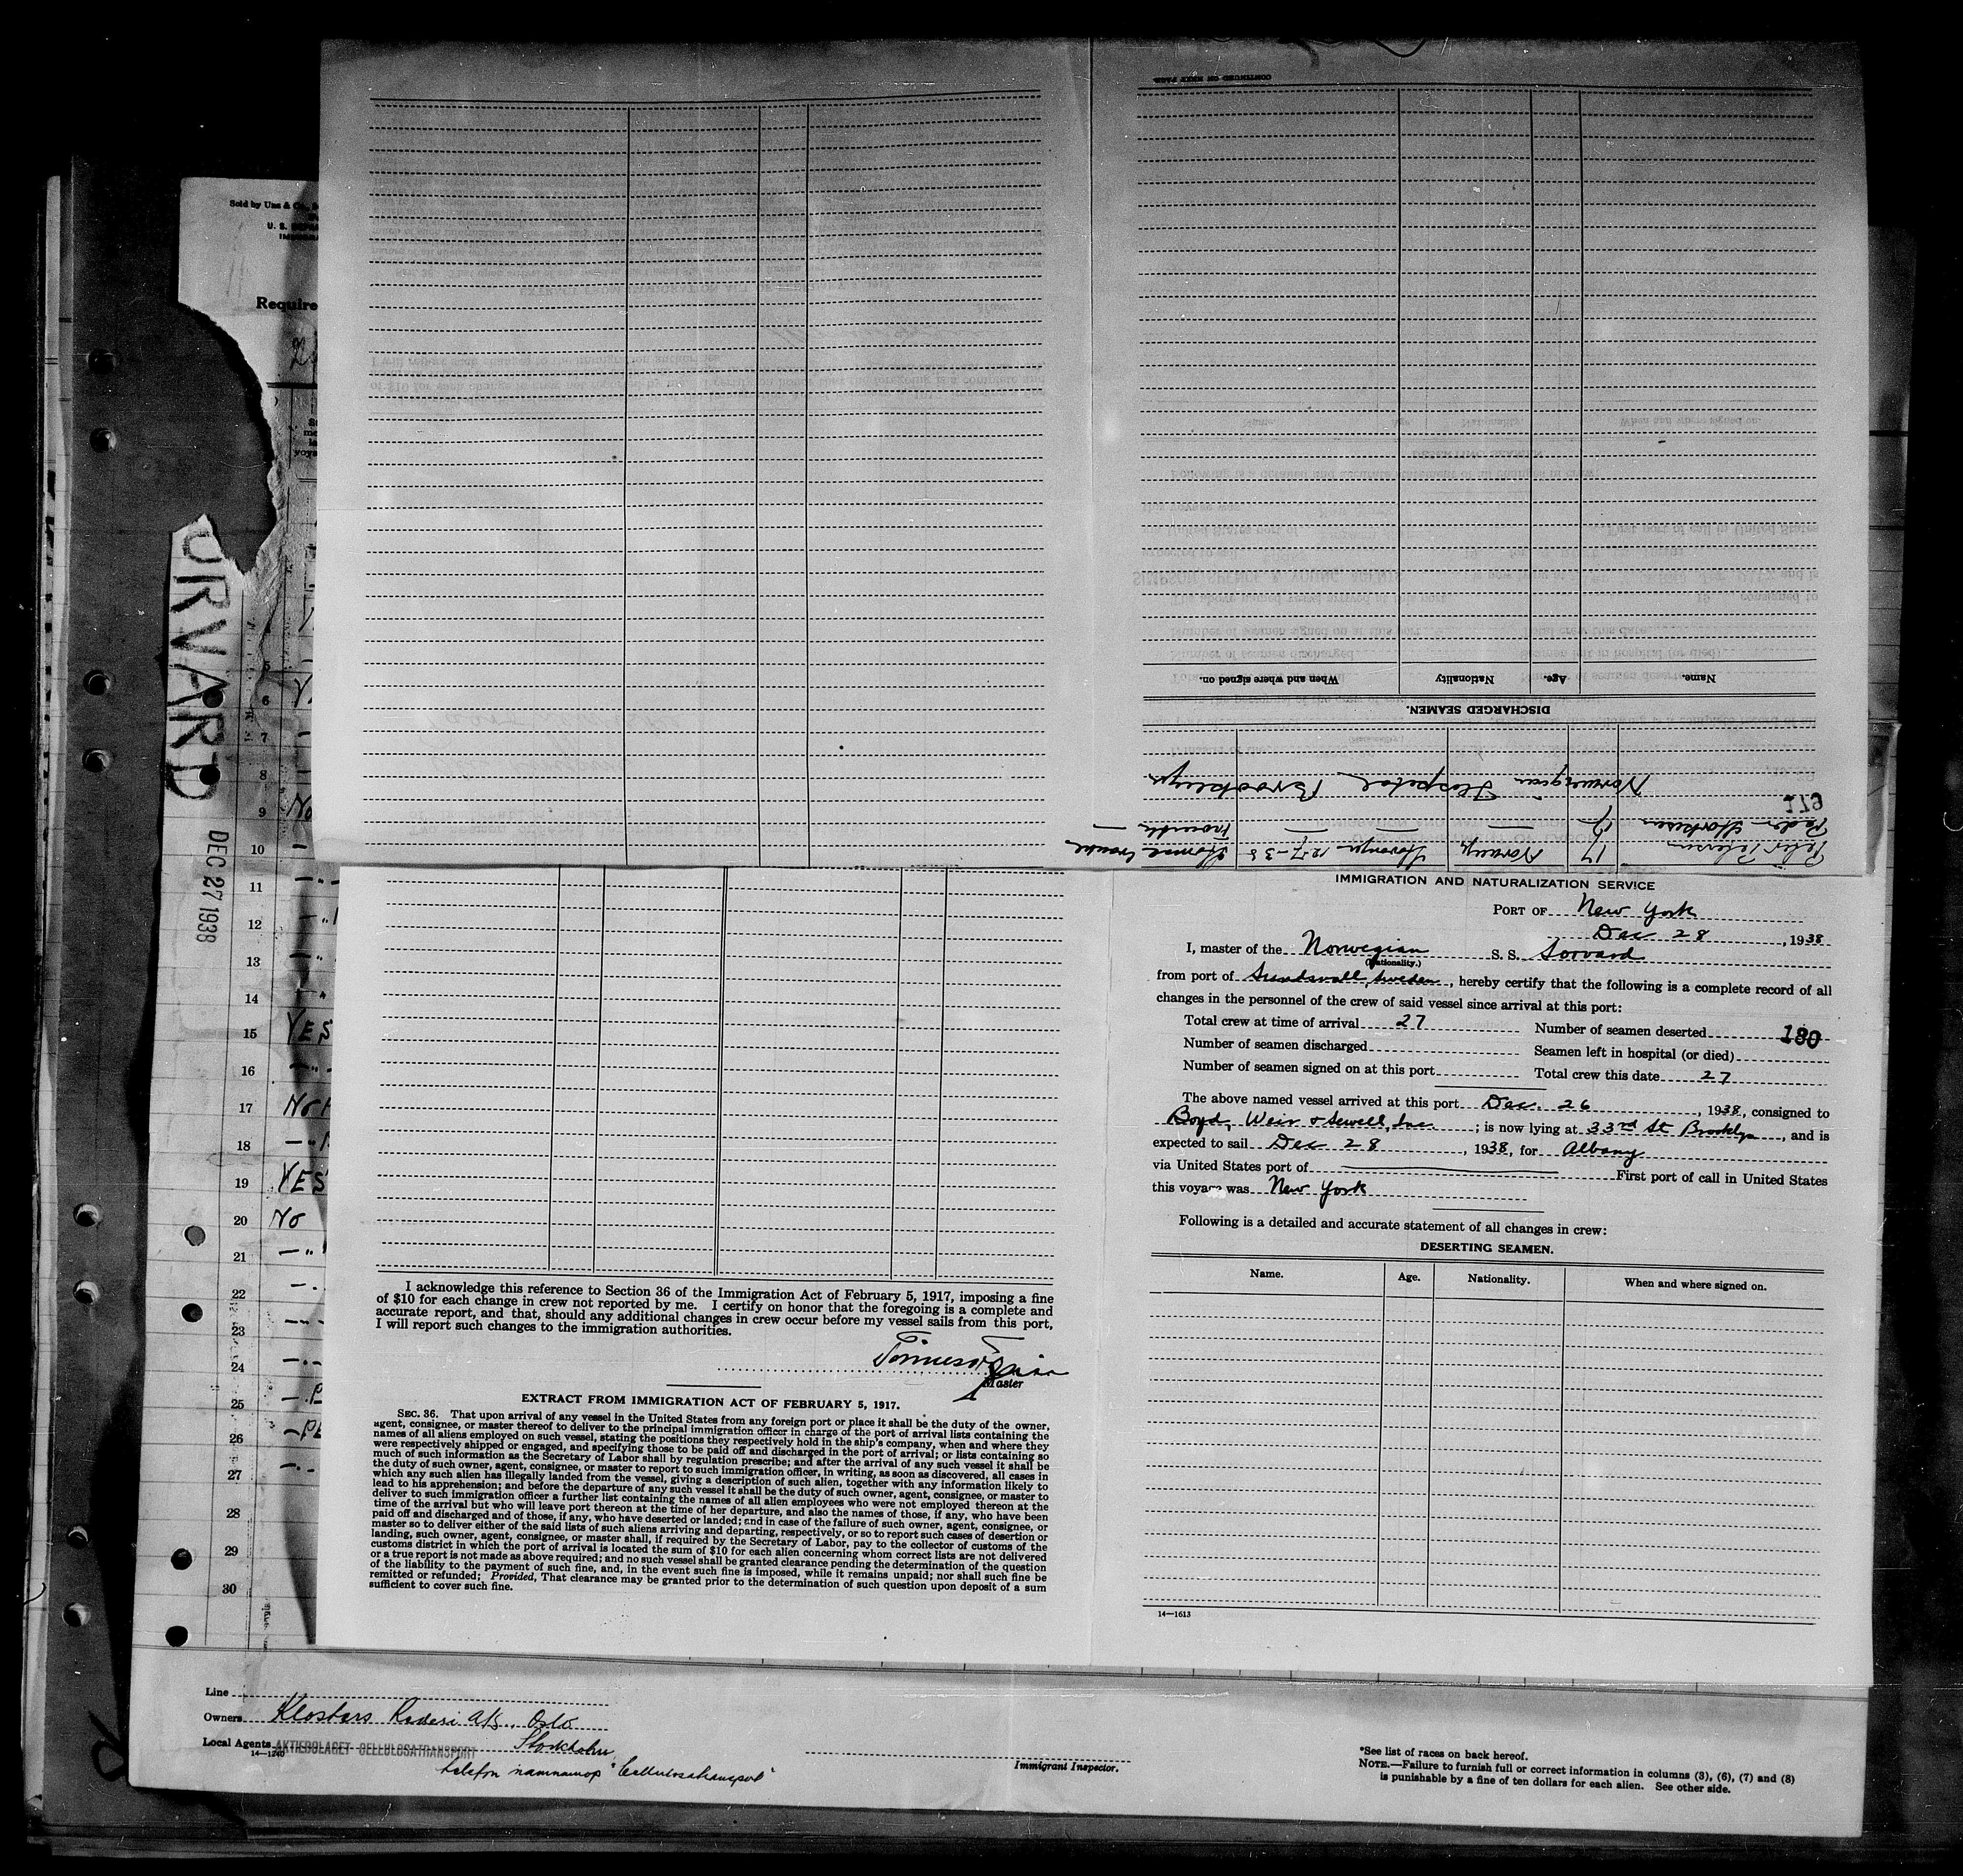 CONTINUED ON NEXT PAGE
Name. Age. Nationality When and where signed on.
DISCHARGED SEAMEN.
Norwegian Hospital Brooklyn
179
Peder
Peter Petersen 17 Norway 12-7-38
Sold by
U. S.
Require
ORVARD
DEC 27 1938
5
6
7
8
9 No
10
11
12
13
14
15 YES
16
17
18
19 YES
20 No
21
22
23
24
25
26
27
28
29
30
IMMIGRATION AND NATURALIZATION SERVICE
PORT OF New York
Dec 28, 1938
I, master of the Norwegian S. S. Sorvard
(Nationality.)
from port of Sundsvall, Sweden, hereby certify that the following is a complete record of all
changes in the personnel of the crew of said vessel since arrival at this port:
Total crew at time of arrival 27 Number of seamen deserted 180
Number of seamen discharged Seamen left in hospital (or died)
Number of seamen signed on at this port Total crew this date 27
The above named vessel arrived at this port Dec. 26, 1938, consigned to
Boyd, Weir & Sewell, Inc.; is now lying at 33rd St Brooklyn, and is
expected to sail Dec 28, 1938, for Albany
via United States port of First port of call in United States
this voyage was New York
Following is a detailed and accurate statement of all changes in crew:
DESERTING SEAMEN.
Name. Age. Nationality. When and where signed on.
14—1613
I acknowledge this reference to Section 36 of the Immigration Act of February 5, 1917, imposing a fine
of $10 for each change in crew not reported by me. I certify on honor that the foregoing is a complete and
accurate report, and that, should any additional changes in crew occur before my vessel sails from this port,
I will report such changes to the immigration authorities.
Master
EXTRACT FROM IMMIGRATION ACT OF FEBRUARY 5, 1917.
SEC. 36. That upon arrival of any vessel in the United States from any foreign port or place it shall be the duty of the owner,
agent, consignee, or master thereof to deliver to the principal immigration officer in charge of the port of arrival lists containing the
names of all aliens employed on such vessel, stating the positions they respectively hold in the ship's company, when and where they
were respectively shipped or engaged, and specifying those to be paid off and discharged in the port of arrival; or lists containing so
much of such information as the Secretary of Labor shall by regulation prescribe; and after the arrival of any such vessel it shall be
the duty of such owner, agent, consignee, or master to report to such immigration officer, in writing, as soon as discovered, all cases in
which any such alien has illegally landed from the vessel, giving a description of such alien, together with any information likely to
lead to his apprehension; and before the departure of any such vessel it shall be the duty of such owner, agent, consignee, or master to
deliver to such immigration officer a further list containing the names of all alien employees who were not employed thereon at the
time of the arrival but who will leave port thereon at the time of her departure, and also the names of those, if any, who have been
paid off and discharged and of those, if any, who have deserted or landed; and in case of the failure of such owner, agent, consignee, or
master so to deliver either of the said lists of such aliens arriving and departing, respectively, or so to report such cases of desertion or
landing, such owner, agent, consignee, or master shall, if required by the Secretary of Labor, pay to the collector of customs of the
customs district in which the port of arrival is located the sum of $10 for each alien concerning whom correct lists are not delivered
or a true report is not made as above required; and no such vessel shall be granted clearance pending the determination of the question
of the liability to the payment of such fine, and, in the event such fine is imposed, while it remains unpaid; nor shall such fine be
remitted or refunded; Provided, That clearance may be granted prior to the determination of such question upon deposit of a sum
sufficient to cover such fine.
Line
Owners Klosters Rederi A/S., Oslo
Local Agents AKTIEBOLAGET CELLULOSATRANSPORT Stockholm
14—1240
telefon namnanrop "Cellulosatransport"
Immigrant Inspector.
*See list of races on back hereof.
NOTE.—Failure to furnish full or correct information in columns (3), (6), (7) and (8)
is punishable by a fine of ten dollars for each alien. See other side.